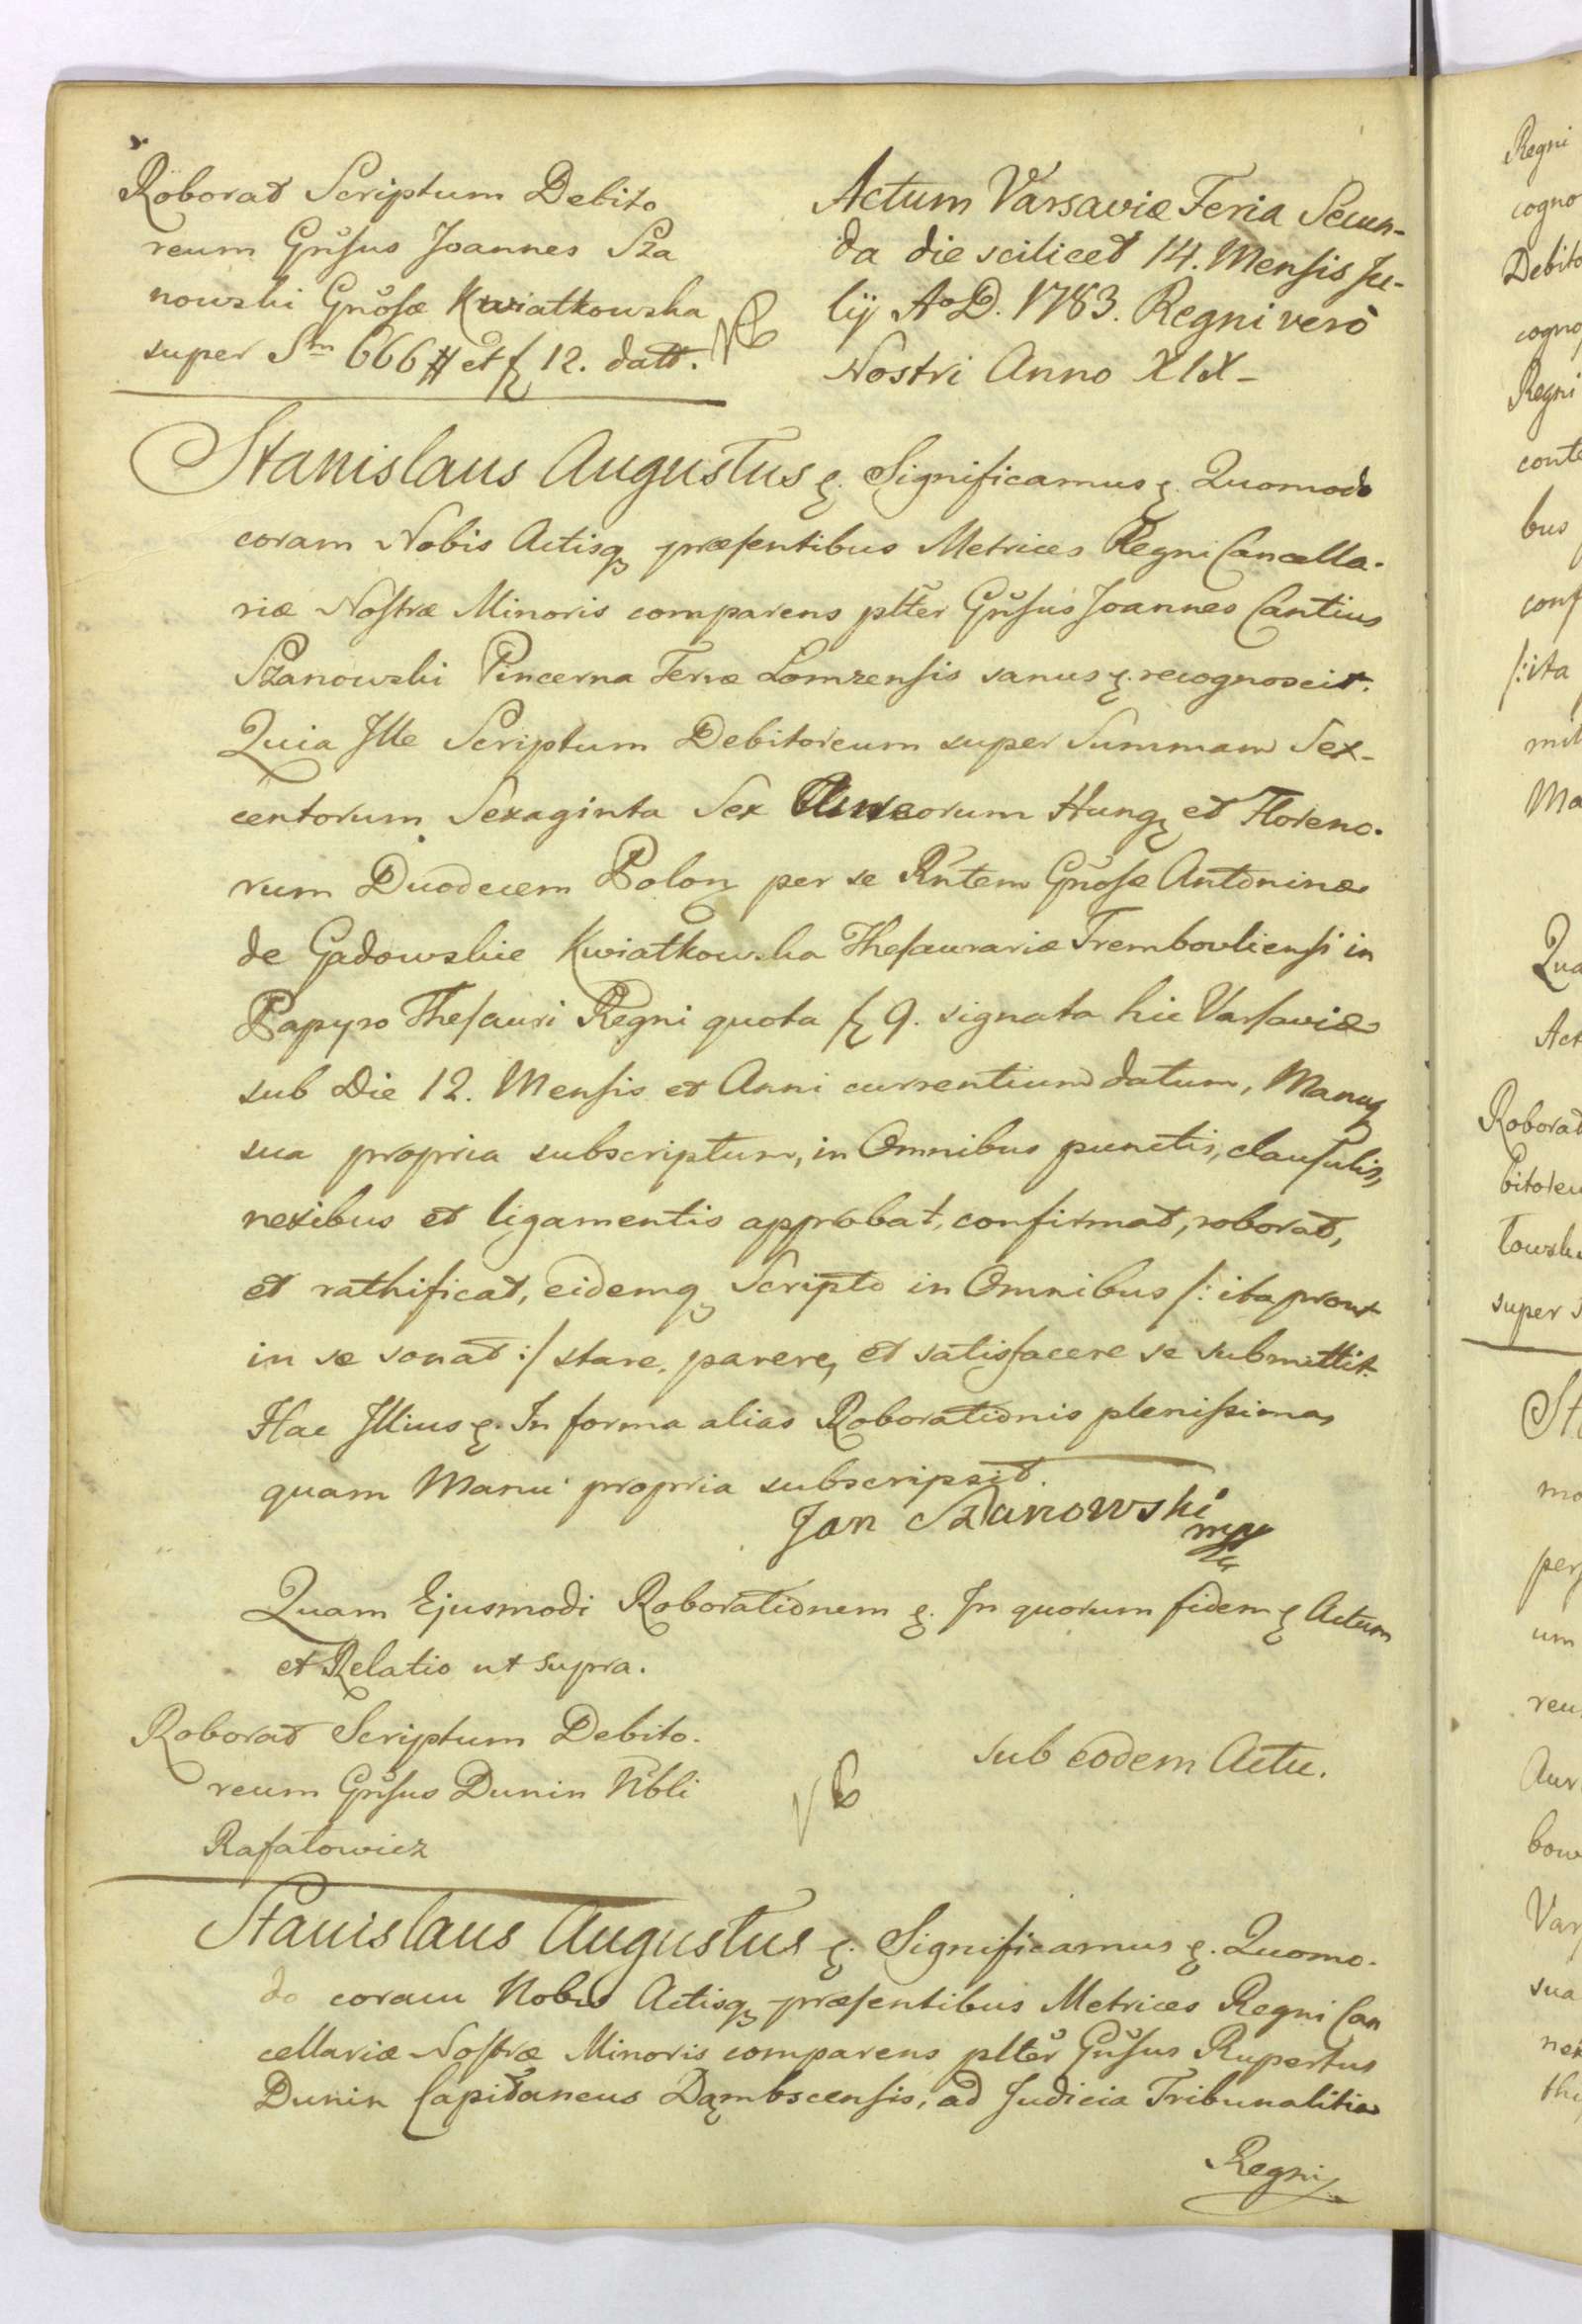 Roborat Scriptum Debito
reum Gnsus Joannes Sza
nowski Gnosæ Kwiatkowska
super Sm 666 # et f 12. datt.
NB
Actum Varsaviæ Feria Secun-
da die scilicet 14. Mensis Ju-
lij Ao D. 1783. Regni verò
Nostri Anno XIX-
Stanislaus Augustus &. Significamus &. Quomodo
coram Nobis Actisq præsentibus Metrices Regni Cancella-
riæ Nostræ Minoris comparens plter Gnsus Joannes Cantius
Szanowski Pincerna Terræ Lomzensis sanus &. recognoscit.
Quia Ille Scriptum Debitoreum super Summam Sex-
centorum Sexaginta Sex Aureorum Hung et Floreno-
rum Duodecem Polon per se Rntem Gnosæ Antoninæ
de Gadowskie Kwiatkowska Thesaurariæ Trembovliensi in
Papyro Thesauri Regni quota f 9. signata hic Varsaviæ
sub Die 12. Mensis et Anni currentium datum, Manuq
sua propria subscriptum, in Omnibus punctis, clausulis,
nexibus et ligamentis approbat, confirmat, roborat,
et rathificat, eidemq Scripto in Omnibus /: ita prout
in se sonat :/ stare, parere, et satisfacere se submittit.
Hac Illius &. In forma alias Roborationis plenissima
quam Manu propria subscripsit.
Jan Szanowski
mpp
Quam Ejusmodi Roborationem &. In quorum fidem & Actum
et Relatio ut supra.
Roborat Scriptum Debito-
reum Gnsus Dunin Nbli
Rafałowicz
NB
sub eodem Actu.
Stanislaus Augustus &. Significamus &. Quomo-
do coram Nobis Actisq præsentibus Metrices Regni Can
cellariæ Nostræ Minoris comparens plter Gnsus Rupertus
Dunin Capitaneus Dąmbscensis, ad Judicia Tribunalitia
Regni
Regni
cogno
Debito
cogno
Regni
conte
bus
conf
/: ita
mit
Ma
Qua
Act
Roborat
bitoreu
towsk
super S
St
mo
per
um
reu
Aur
bow
Var
sua
nex
thi